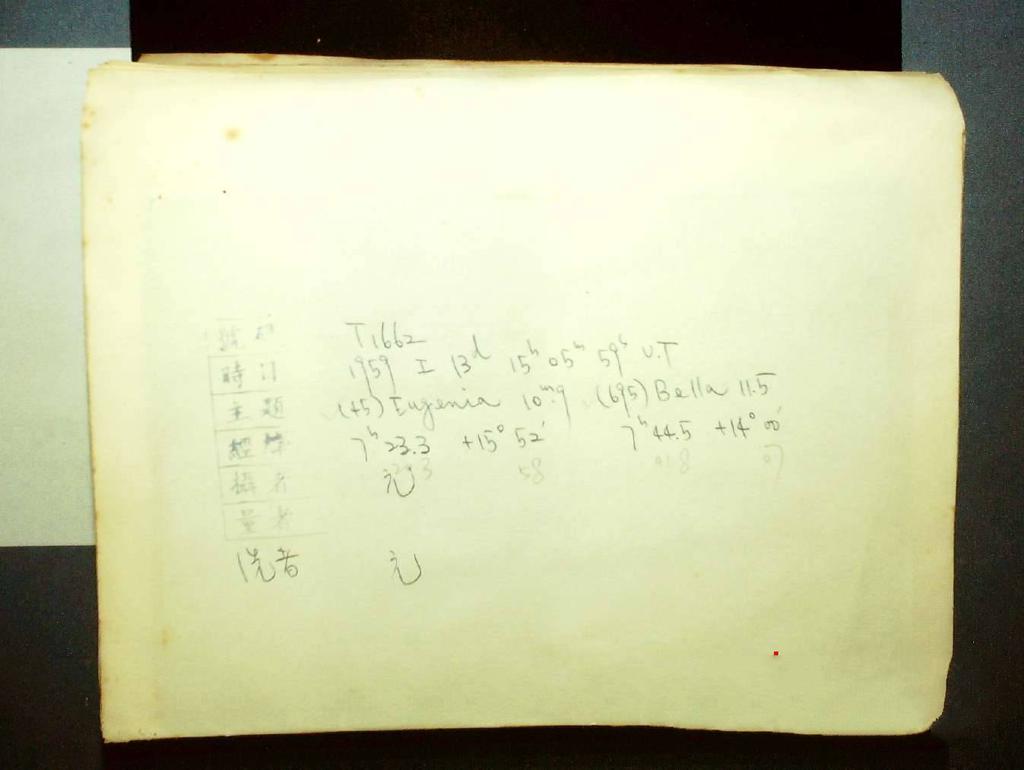 號碼 T1662
時日 1959 I 13d 15h 05m 59s U.T
主題 (45) Eugenia 10m.9 (695) Bella 11.5
經緯 7h 23.3 +15° 52' 7h 44.5 +14° 00'
攝者 元
量者
洗者 元